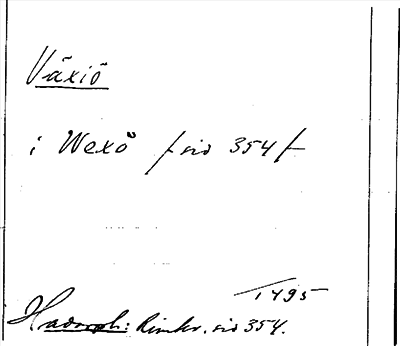 Växiö
i Wexö /: sid 354 :/
1495
Hadorph: Rimkr. sid 354.